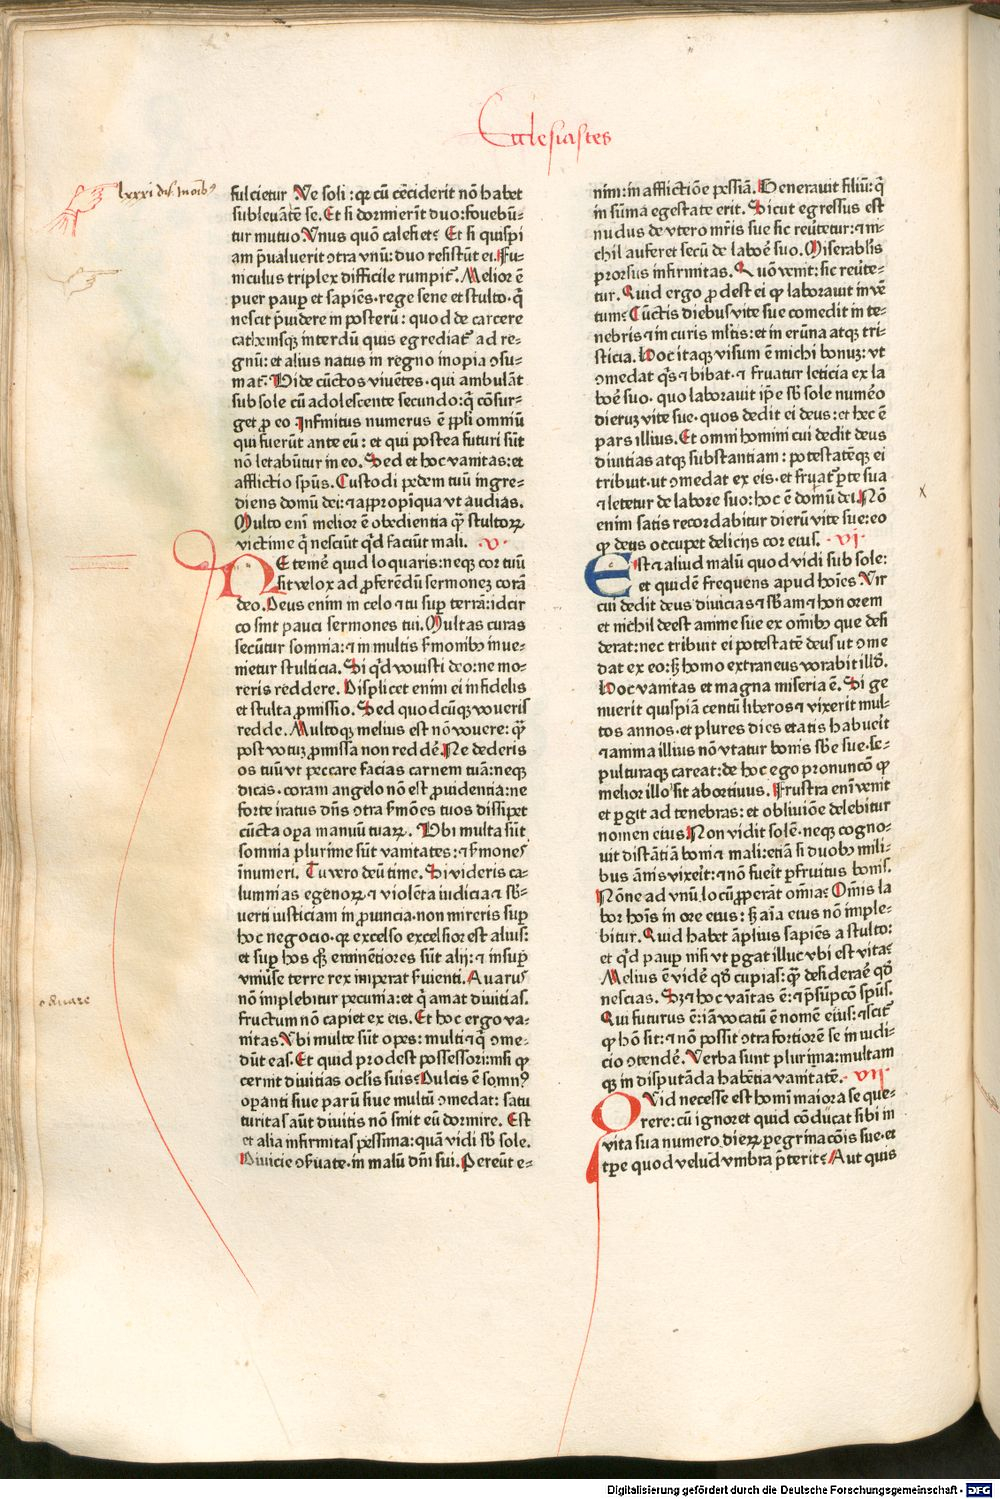 Ecclesiastes
lxxxi dis.
fulcietur Ve soli: qꝛ cū cēciderit nō habet
sublevātē se. Et si dormierīt duo: fovebū-
tur mutuo. Vnus quō calefiet? Et si quispi
am p̄valuerit ɔtra vnū: duo resistūt ei. Fu-
niculus triplex difficile rumpit᷑. Melior ē
puer paup̱ et sapiēs. rege sene et stulto. q̄
nescit p̄videre in posterū: quod de carcere
cathenisqꝫ interdū quis egrediat᷑ ad re-
gnū: et alius natus in regno inopia ɔsu-
mat᷑. Vide cūctos viuētes. qui ambulāt
sub sole cū adolescente secundo: q̄ cōsur-
get ꝓ eo. Infinitus numerus ē ppli omniū
qui fuerūt ante eū: et qui postea futuri sūt
nō letabūtur in eo. Sed et hoc vanitas: et
afflictio spūs. Custodi pedem tuū ingre-
diens domū dei: ⁊ appropīqua vt audias.
Multo eni̅ melior ē obedientia q̄ stultoꝝ
victime q̄ nesciūt qͥd faciūt mali. .v.
NE temē quid loquaris: neqꝫ cor tuū
sit velox ad ꝓferēdū sermonez corā
deo. Deus enim in celo ⁊ tu sup̱ terrā: idcir
co sint pauci sermones tui. Multas curas
secūtur somnia: ⁊ in multis s̄monibꝰ inue-
nietur stulticia. Si qͥd vovisti deo: ne mo-
reris reddere. Displicet enim ei infidelis
et stulta ꝓmissio. Sed quodcūqꝫ voueris
redde. Multoqꝫ melius est nō vouere: q̄
post votuz ꝓmissa non reddē. Ne dederis
os tuū vt peccare facias carnem tuā: neqꝫ
dicas. coram angelo nō est ꝓuidentia: ne
forte iratus dn̄s ɔtra s̄mōes tuos dissipet
cūcta oꝑa manuū tuaꝝ. Vbi multa sūt
somnia plurime sūt vanitates: ⁊ s̄mones
īnumeri. Tu vero deū time. Si videris ca-
lumnias egenoꝝ ⁊ violēta iudicia ⁊ sb̄-
uerti iusticiam in ꝓuincia. non mireris sup̱
hoc negocio. qꝛ excelso excelsior est alius:
et sup̱ hos qͦꝫ eminētiores sūt alij: ⁊ insup̱
vniūse terre rex imperat s̄uienti. Auarus
nō implebitur pecunia: et q̄ amat divitias.
fructum nō capiet ex eis. Et hoc ergo va-
nitas. Vbi multe sūt opes: multi ⁊ q̄ ɔme-
dūt eas. Et quid prodest possessori: nisi ꝙ
cernit divitias oclis suis? Dulcis ē somnꝰ
oꝑanti siue parū siue multū ɔmedat: satu
ritas aūt divitis nō sinit eū dormire. Est
et alia infirmitas pessima: quā vidi sb̄ sole.
Divicie ɔs̄uate. in malū dn̄i sui. Pereūt e-
nim: in afflictiōe pessiā. Generauit filiū: q̄
in sūma egestate erit. Sicut egressus est
nudus de vtero mr̄is sue sic reūtetur: ⁊ ni-
chil auferet secū de laboē suo. Miserablis
prorsus infirmitas. Quō venit: sic reūte-
tur. Quid ergo ꝓdest ei ꝙ laboravit in vē
tum? Cūctis diebus vite sue comedit in te-
nebris ⁊ in curis ml̄tis: et in erūna atqꝫ tri-
sticia. Hoc itaqꝫ visum ē michi bonuz: vt
ɔmedat qͥs ⁊ bibat. ⁊ fruatur leticia ex la
boē suo. quo laboravit ip̄e sb̄ sole numēo
dieruz vite sue. quos dedit ei deus: et hec ē
pars illius. Et omni homini cui dedit deus
divitias atqꝫ substantiam: potestatēqꝫ ei
tribuit. ut ɔmedat ex eis. et fruat᷑ ꝑte sua
⁊ letetur de labore suo: hoc ē donū dei. Nō
enim satis recordabitur dierū vite sue: eo
ꝙ deus occupet delicijs cor eius. .vi.
ESt ⁊ aliud malū quod vidi sub sole:
et quidē frequens apud hoīes. Vir
cui dedit deus divicias ⁊ sb̄am ⁊ honorem
et nichil deest anime sue ex om̄ibꝰ que desi
derat: nec tribuit ei potestatē deus ut ɔme
dat ex eo: sꝫ homo extraneus vorabit illd̄.
Hoc vanitas et magna miseria ē. Si ge
nuerit quispiā centū liberos ⁊ vixerit mul-
tos annos. et plures dies etatis habueīt
⁊ anima illius nō vtatur bonis sb̄e sue. se-
pulturaqꝫ careat: de hoc ego pronuncō ꝙ
melior illo sit abortivus. Frustra enī venit
et ꝑgit ad tenebras: et obliviōe delebitur
nomen eius. Non vidit solē. neqꝫ cogno-
uit distātiā boni ⁊ mali: etiā si duobꝰ mili-
bus ānis vixeīt: ⁊ nō fueīt ꝑfruitus bonis.
Nōne ad vnū locū ꝓꝑerāt om̄ia? Om̄is la
bor hoīs in ore eius: sꝫ aīa eius nō imple-
bitur. Quid habet āplius sapiēs a stulto:
et qͥd paup̱ nisi vt ꝑgat illuc vbi est vita?
Melius ē vidē qd̄ cupias: q̄ desideraē qd̄
nescias. Sꝫ ⁊ hoc vaītas ē: ⁊ p̄sūpcō spūs.
Qui futurus ē: iā vocatū ē nomē eius: ⁊ scit᷑
ꝙ hō sit: ⁊ nō possit ɔtra fortiorē se in iudi-
cio ɔtendē. Verba sunt plurīma: multam
qꝫ in disputāda habētia vanitatē. .vii.
QVid necesse est homī maiora se que-
rere: cū ignoret quid cōducat sibi in
vita sua numero dieꝝ ꝑegrinacōis sue. et
tꝑe quod velud vmbra p̄terit? Aut quis
Digitalisierung gefördert durch die Deutsche Forschungsgemeinschaft - DFG